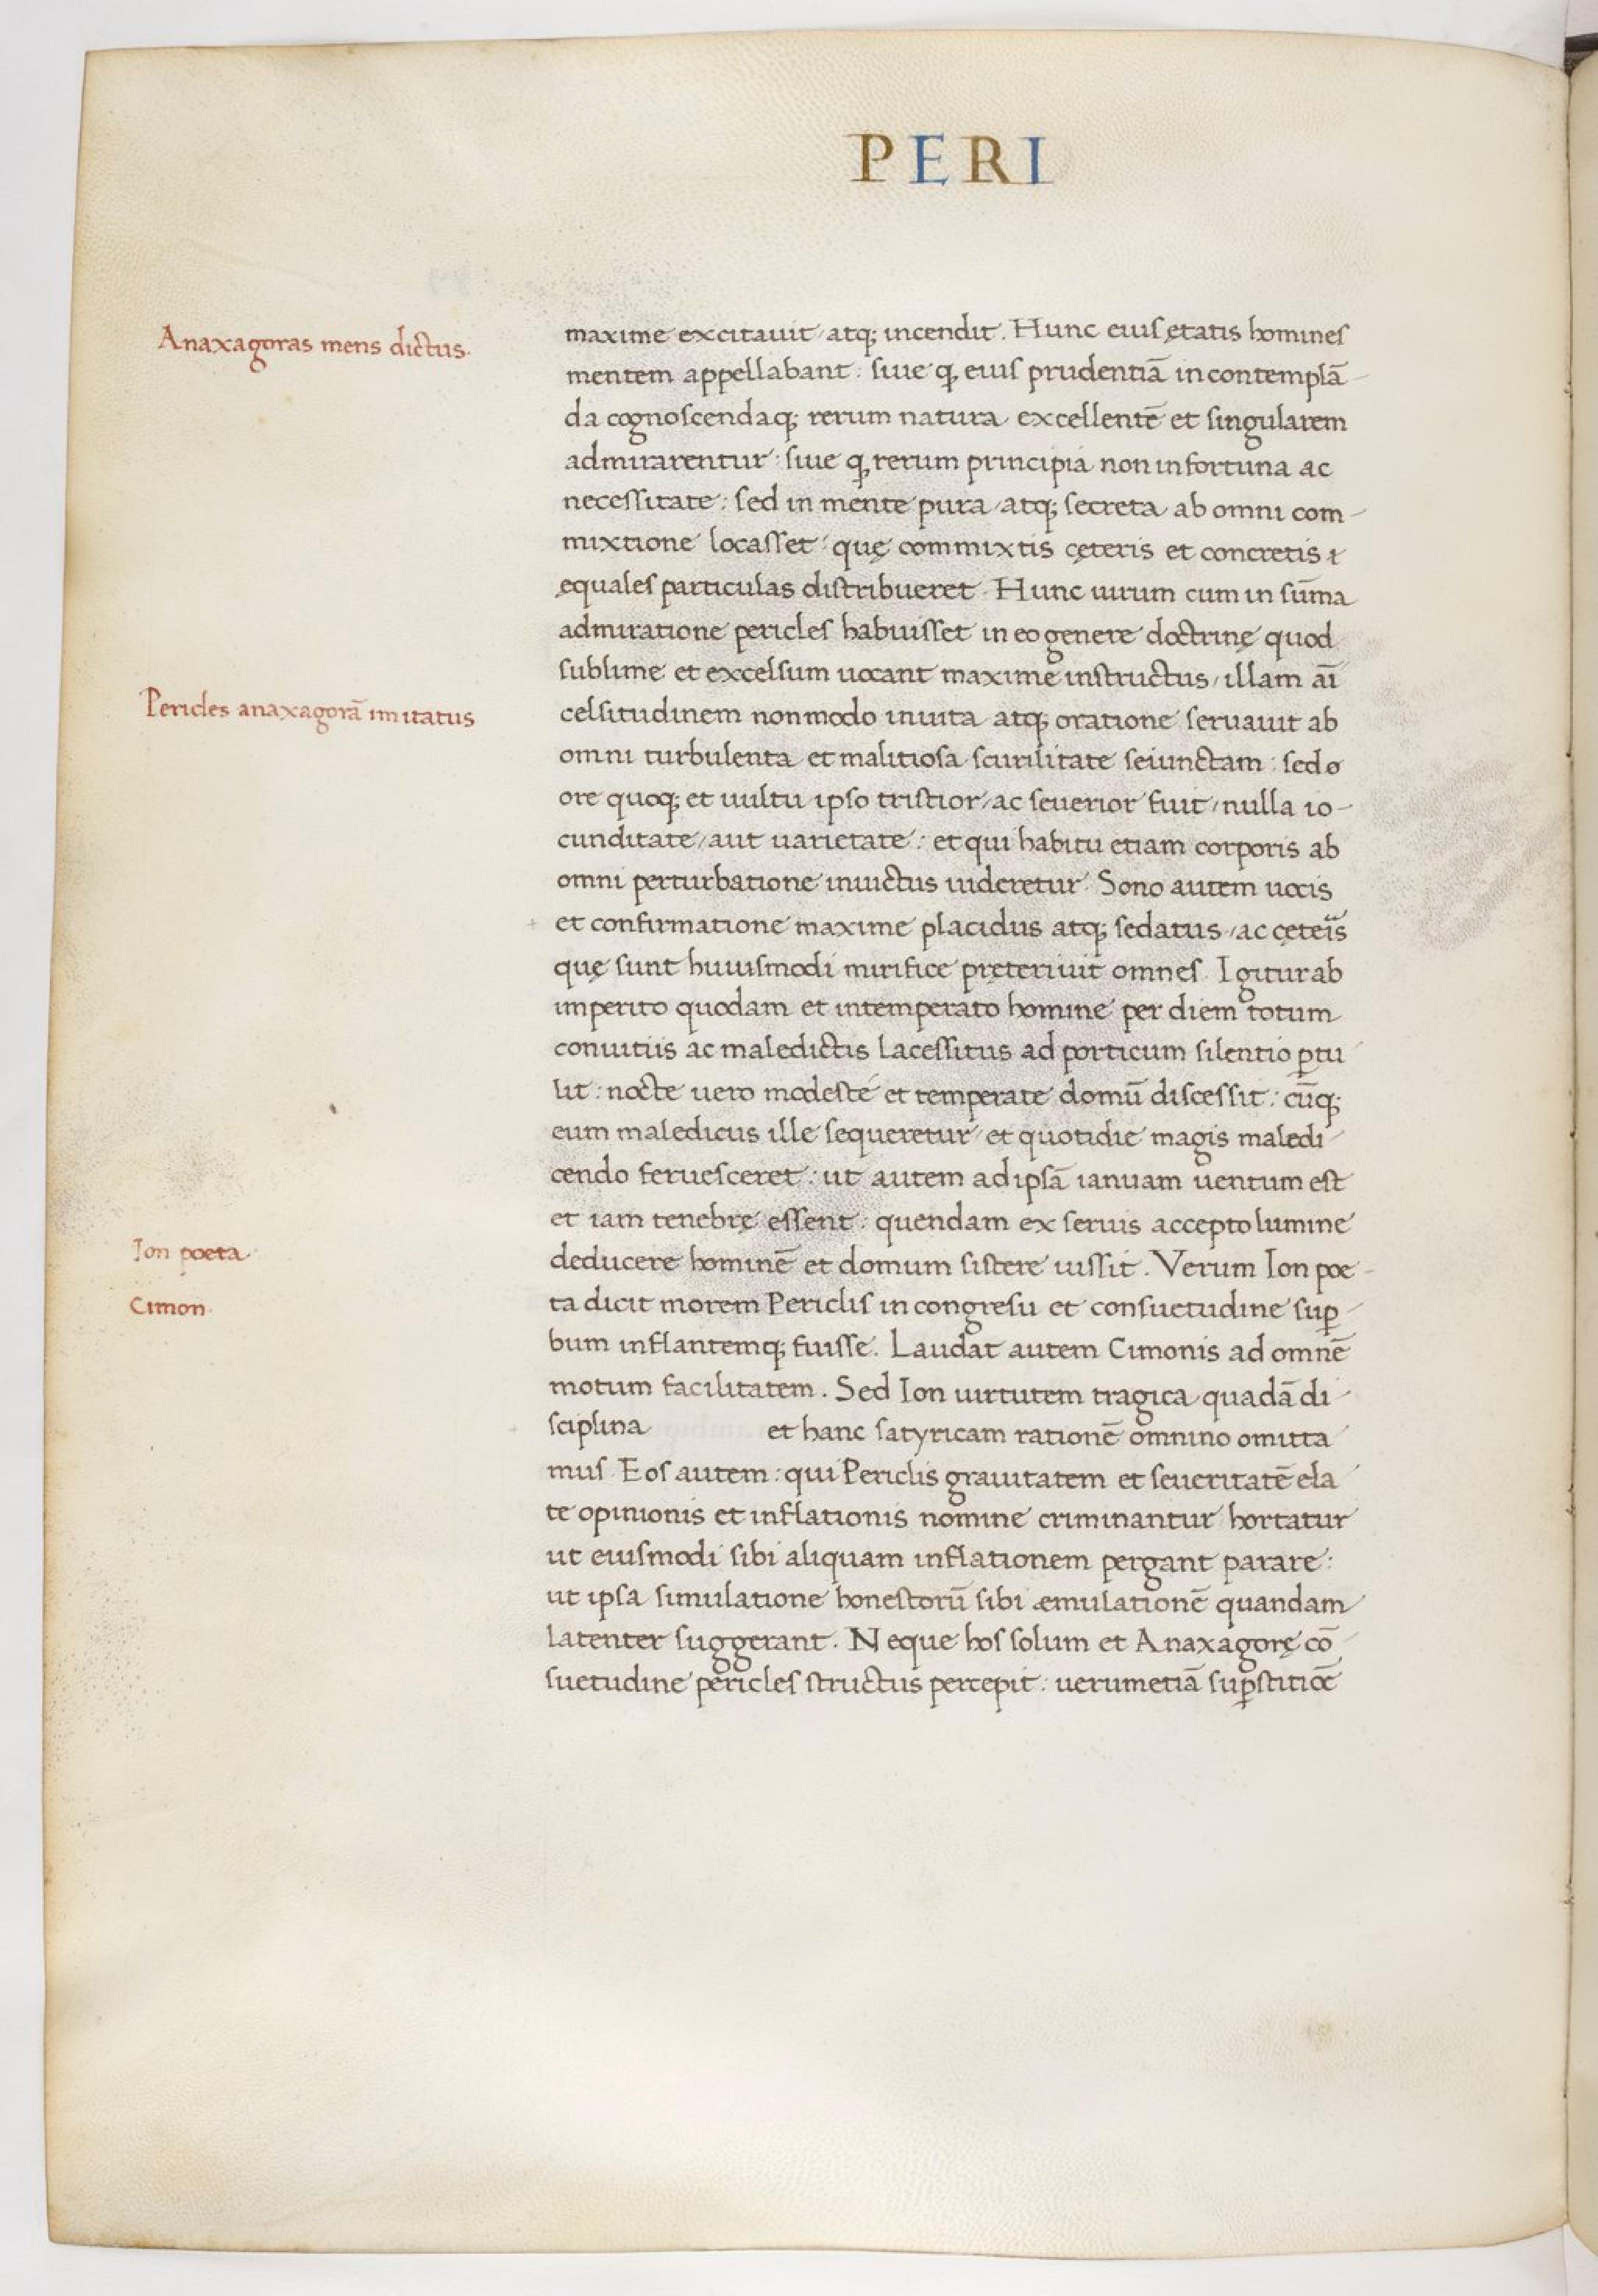 PERI
Anaxagoras mens dictus.
maxime excitauit atq; incendit. Hunc eius ętatis homines
mentem appellabant: siue ꝙ eius prudentiā in contemplā-
da cognoscendaq; rerum natura excellentē et singularem
admirarentur: siue ꝙ rerum principia non in fortuna ac
necessitate: sed in mente pura atq; secreta ab omni com-
mixtione locasset quę commixtis cęteris et concretis ı̇
ęquales particulas distribueret. Hunc uirum cum in sūma
admiratione pericles habuisset in eo genere doctrinę quod
sublime et excelsum uocant maxime instructus, illam aı̄
Pericles anaxagorā imitatus
celsitudinem non modo in uita atq; oratione seruauit ab
omni turbulenta et malitiosa scurilitate seiunctam: sed
ore quoq; et uultu ipso tristior, ac seuerior fuit, nulla io-
cunditate, aut uarietate: et qui habitu etiam corporis ab
omni perturbatione inuictus uideretur. Sono autem uocis
et confirmatione maxime placidus atq; sedatus, ac cęteis
quę sunt huiusmodi mirifice pręteriuit omnes. Igitur ab
imperito quodam et intemperato homine per diem totum
conuitiis ac maledictis lacessitus ad porticum silentio ꝑtu
lit: nocte uero modeste et temperate domū discessit: cūq;
eum maledicus ille sequeretur et quotidie magis maledi-
cendo feruesceret: ut autem ad ipsā ianuam uentum est
et iam tenebrę essent: quendam ex seruis accepto lumine
Ion poeta
deducere hominē et domum sistere iussit. Verum Ion poe-
Cimon.
ta dicit morem Periclis in congresu et consuetudine suꝑ-
bum inflantemq; fuisse. Laudat autem Cimonis ad omnē
motum facilitatem. Sed Ion uirtutem tragica quadā di-
sciplina et hanc satyricam rationē omnino omitta
mus. Eos autem: qui Periclis grauitatem et seueritatē ela
te opinionis et inflationis nomine criminantur hortatur
ut eiusmodi sibi aliquam inflationem pergant parare:
ut ipsa simulatione honestorū sibi æmulationē quandam
latenter suggerant. Neque hos solum et Anaxagorę cō
suetudine pericles structus percepit: uerumetiā suꝑstitiōē